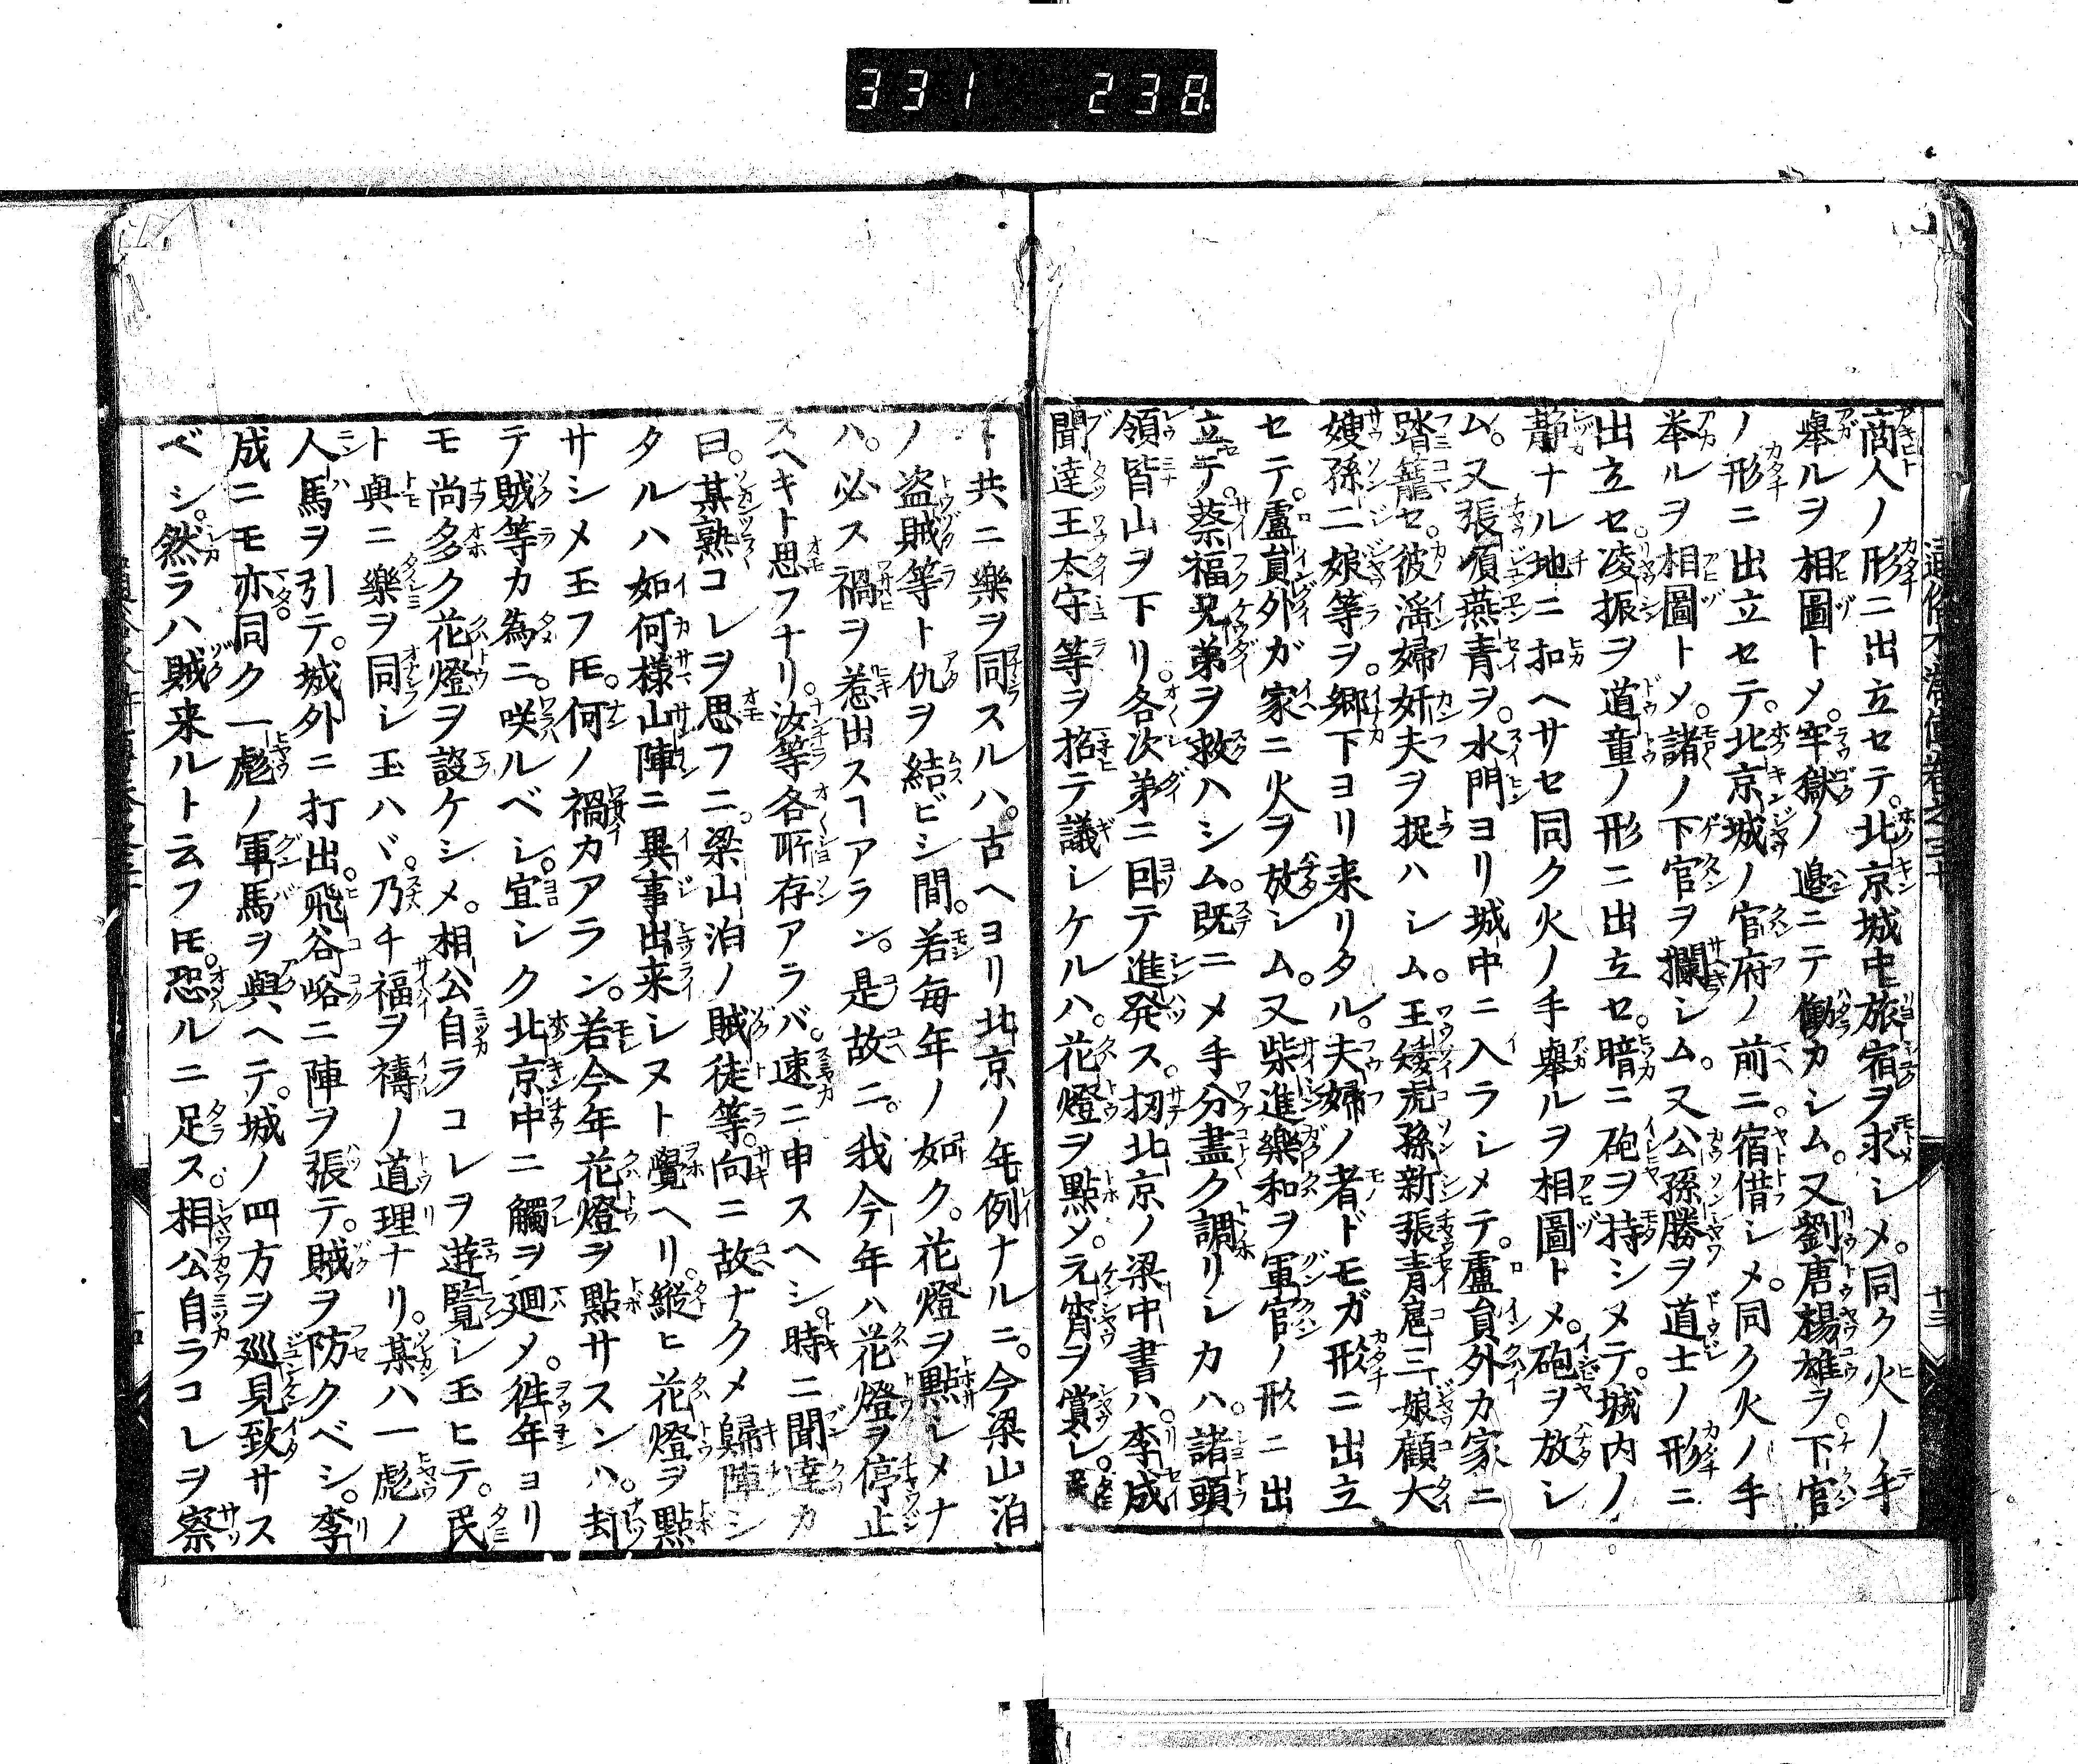 331 238
商人ノ形ニ出立セテ。北京城中旅宿ヲ求レメ。同ク火ノ手
擧ルヲ相圖トメ。牢獄ノ邉ニテ働カシム。又劉唐楊雄ヲ。下官
ノ形ニ出立セテ。北京城ノ官府ノ前ニ。宿借シメ。同ク火ノ手
挙ルヲ相圖トメ。諸ノ下官ヲ攔シム。又公孫勝ヲ道士ノ形ニ
出立セ。凌振ヲ道童ノ形ニ出立セ。暗ニ砲ヲ持シメテ。城内ノ
静ナル地ニ扣ヘサセ同ク火ノ手擧ルヲ相圖トメ。砲ヲ放シ
ム。又張順燕青ヲ。水門ヨリ城中ニ入ラシメテ。盧員外カ家ニ
踏籠セ。彼滛婦奸夫ヲ捉ハシム。王矮虎孫新張青扈三娘顧大
嫂孫二娘等ヲ。郷下ヨリ来リタル。夫婦ノ者ドモガ形ニ出立
セテ。盧員外ガ家ニ火ヲ放シム。又柴進樂和ヲ軍官ノ形ニ出
立テ。蔡福兄弟ヲ救ハシム。既ニメ手分盡ク調リレカハ。諸頭
領皆山ヲ下リ。各次苐ニ回テ進発ス。扨北京ノ梁中書ハ。李成
聞達王太守等ヲ招テ議レケルハ。花燈ヲ點メ。元宵ヲ賞シ。民
ト共ニ樂ヲ同スルハ。古ヘヨリ北京ノ年例ナルニ。今梁山泊
ノ盗賊等ト仇ヲ結ビシ間。若毎年ノ如ク。花燈ヲ點レメナ
ハ。必ス禍ヲ惹出スヿアラン。是故ニ。我今年ハ花燈ヲ停止
スヘキト思フナリ。汝等各所存アラバ。速ニ申スヘシ。時ニ聞達カ
曰。某熟コレヲ思フニ。梁山泊ノ賊徒等。向ニ故ナクメ歸陣シ
タルハ如何様山陣ニ異事出来レヌト覺ヘリ。縦ヒ花燈ヲ點
サシメ玉フ𪜈。何ノ禍カアラン。若今年花燈ヲ點サスンハ。却
テ賊等カ為ニ。咲ルベシ。宜シク北京中ニ觸ヲ廻メ。徃年ヨリ
モ尚多ク花燈ヲ設ケシメ。相公自ラコレヲ遊覽レ玉ヒテ。民
ト與ニ樂ヲ同レ玉ハヾ。乃チ福ヲ禱ノ道理ナリ。某ハ一彪ノ
人馬ヲ引テ。城外ニ打出。飛谷峪ニ陣ヲ張テ。賊ヲ防クベシ。李
成ニモ亦同ク一彪ノ軍馬ヲ與ヘテ。城ノ四方ヲ廵見致サス
ベシ。然ラハ賊来ルト云フ𪜈。恐ルニ足ス。相公自ラコレヲ察